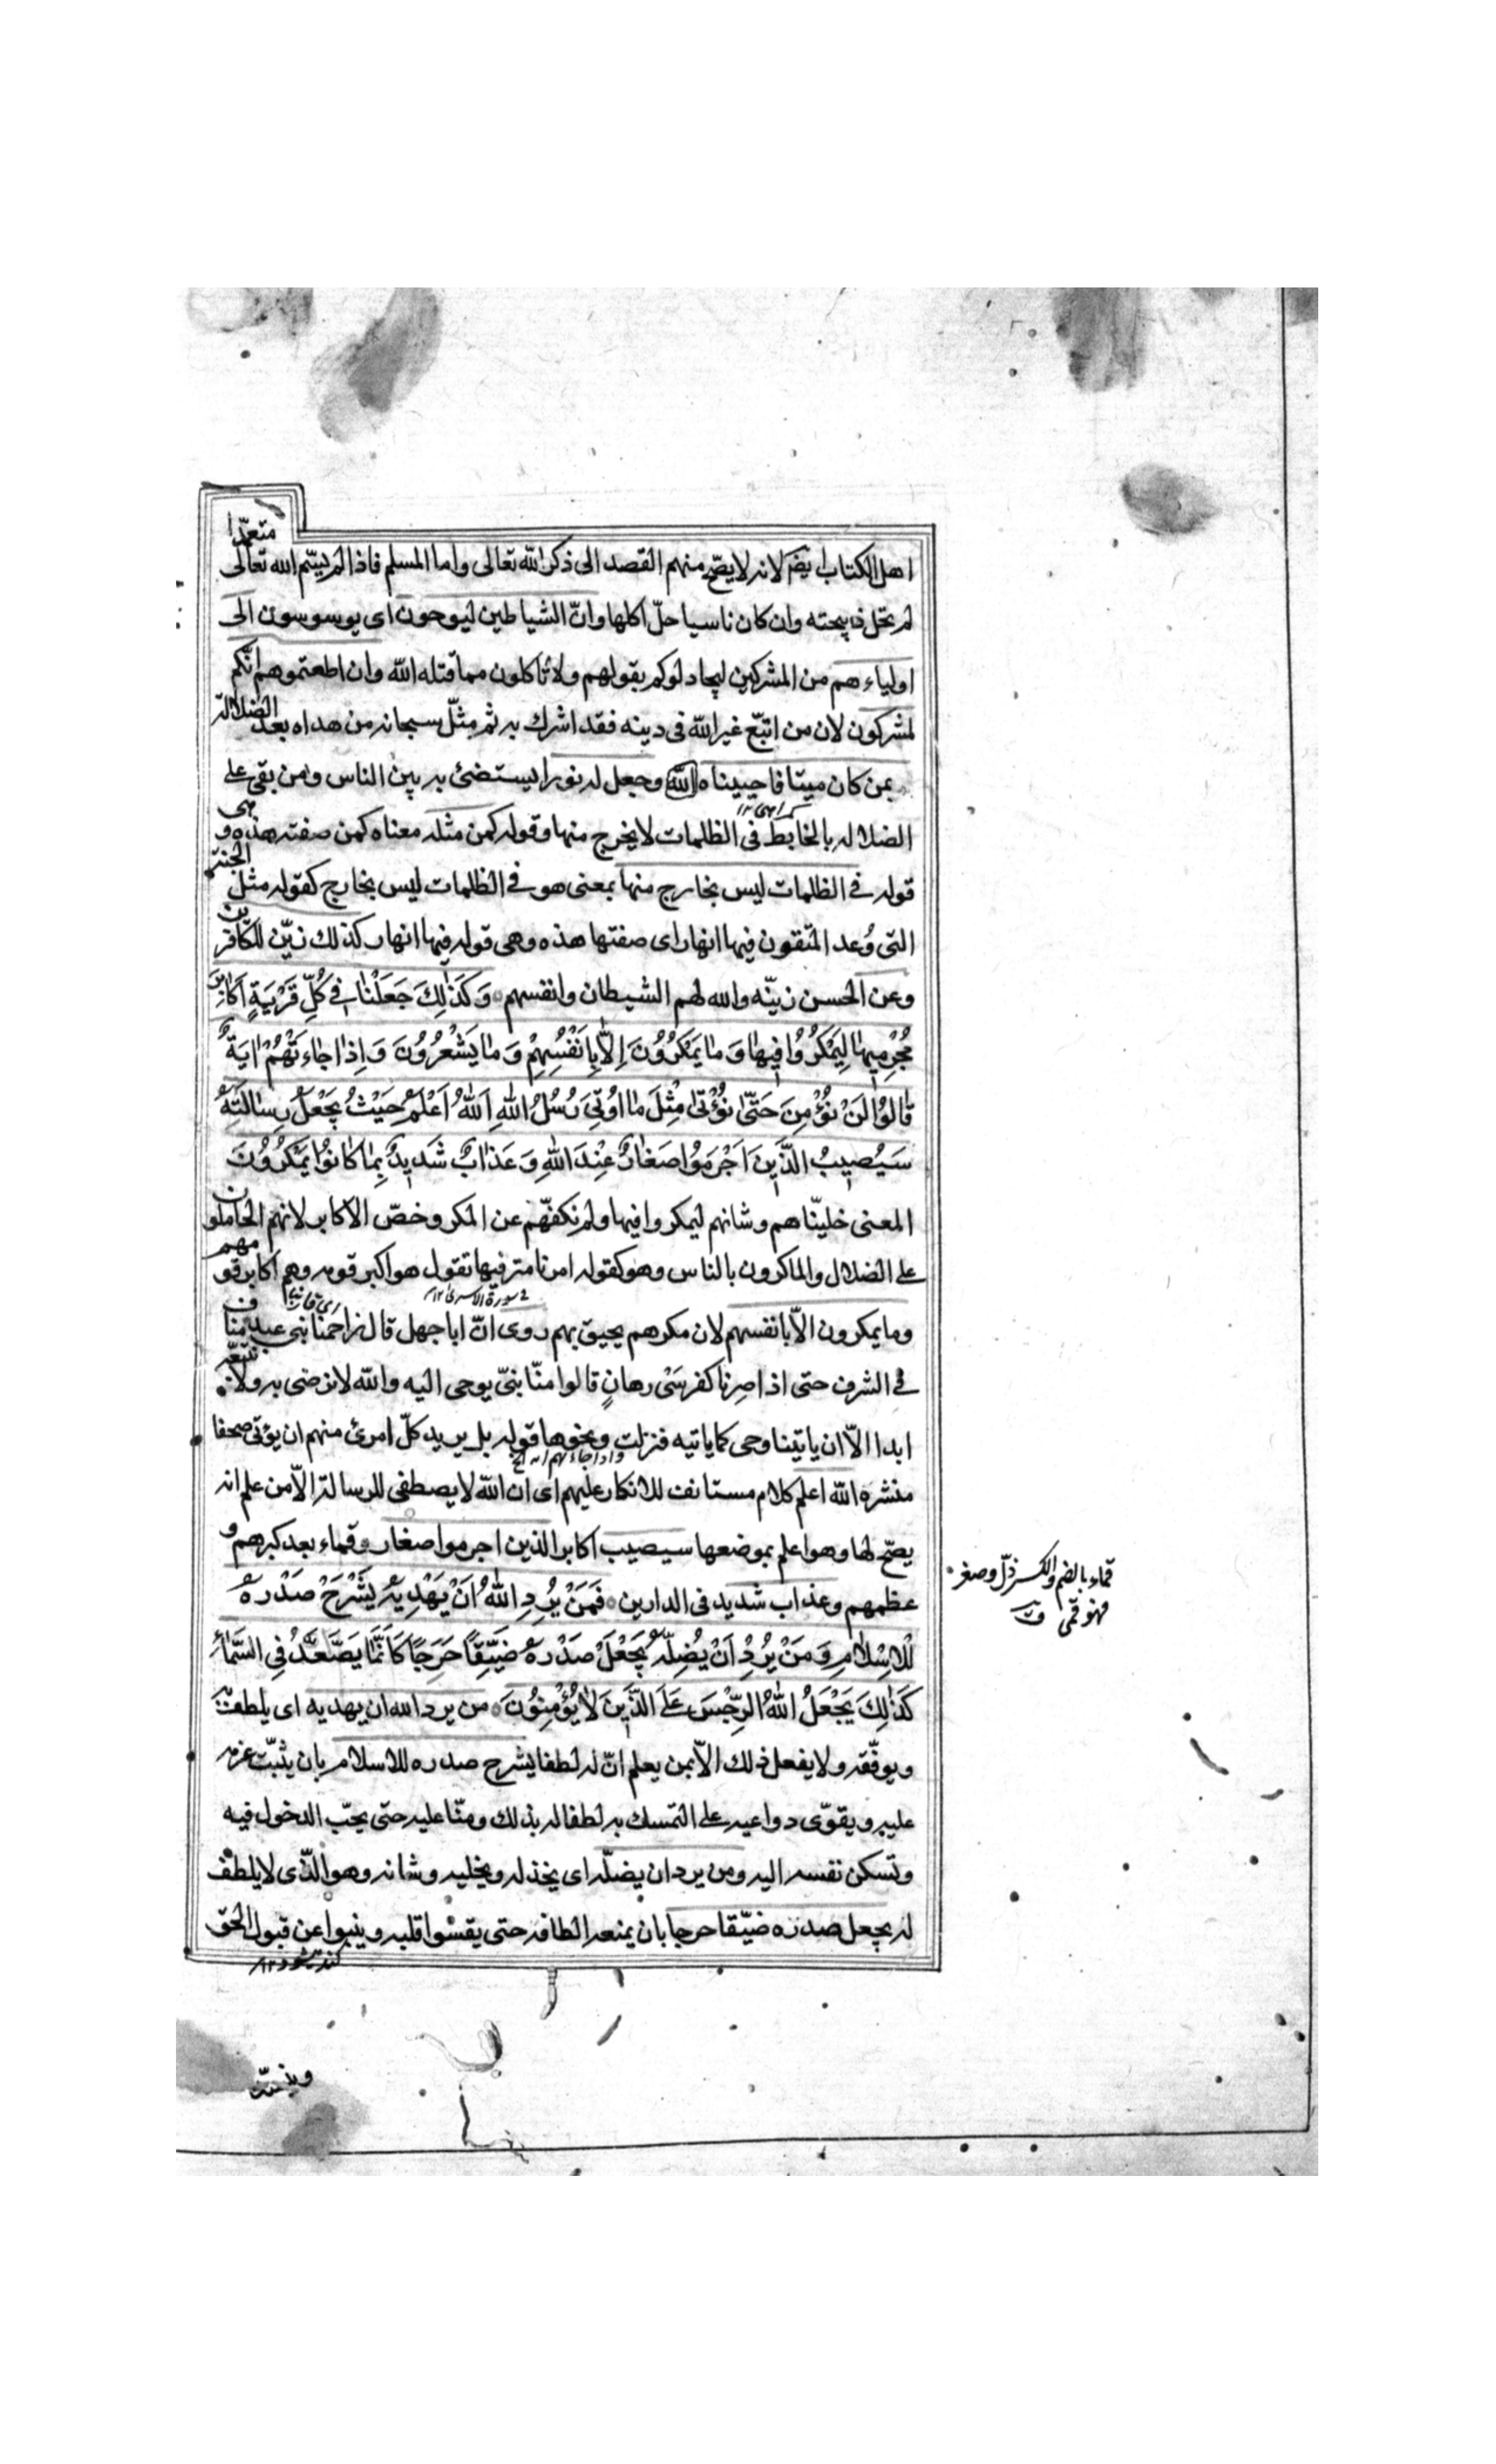 اهل الكتاب ايضا لانه لا يصحّ منهم القصد الى ذكر الله تعالى واما المسلم فاذا لم يسمّ الله تعالى متعمّدا
لم تحلّ ذبيحته وان كان ناسيا حلّ اكلها وانّ الشياطين ليوحون اى يوسوسون الى
اولياءهم من المشركين ليجادلوكم بقولهم ولا تاكلون مما قتله الله وان اطعتموهم انّكم
لمشركون لان من اتبّع غير الله فى دينه فقد اشرك به ثم مثّل سبحانه من هداه بعد الضلالة
بمن كان ميتا فاحييناه الله وجعل له نورا يستضئ به بين الناس ومن بقى على
الضلاله بالخابط فى الظلمات لا يخرج منها وقوله كمن مثله معناه كمن صفته هذه وهى
قوله فى الظلمات ليس بخارج منها بمعنى هو فى الظلمات ليس بخارج كقوله مثل الجنة
التى وُعد المتّقون فيها انهار اى صفتها هذه وهى قوله فيها انهار كذلك زيّن للكافرين
وعن الحسن زيّنه والله لهم الشيطان وانفسهم وَكَذٰلِكَ جَعَلْنٰا فِي كُلِّ قَرْيَةٍ اَكٰابِرَ
مُجْرِمِيهٰا لِيَمْكُرُوا فِيهٰا وَمٰا يَمْكُرُوُنَ اِلّٰا بِاَنْفُسِهِمْ وَمٰا يَشْعُرُوُنَ وَاِذٰا جٰاءَتْهُمْ اٰيَةٌ
قٰالُوُا لَنْ نُؤْمِنَ حَتّٰى نُؤْتٰى مِثْلَ مٰا اُوُتِيَ رُسُلُ اللهِ اَللهُ اَعْلَمُ حَيْثُ يَجْعَلُ رِسٰالَتَهُ
سَيُصِيبُ الَّذِينَ اَجْرَمُوُا صَغٰارٌ عِنْدَ اللهِ وَعَذٰابٌ شَدِيدٌ بِمٰا كٰانُوُا يَمْكُرُوُنَ
المعنى خليّناهم وشانهم ليمكروا فيها ولم نكفّهم عن المكر وخصّ الاكابر لانهم الحاملون
على الضلال والماكرون بالناس وهو كقوله امرنا مترفيها تقول هو اكبر قومه وهم اكابر قومهم
فى سورة الاسرى ١٢
وما يمكرون الاّ بانفسهم لان مكرهم يحيق بهم روى انّ ابا جهل قال زاحمنا بنى عبد مناف
فى الشرف حتى اذا صِرنا كفرسَىْ رهانٍ قالوا منّا نبىّ يوحى اليه والله لا نرضى به ولا نتبعه
ابدا الاّ ان ياتينا وحى كما ياتيه فنزلت ونحوها قوله بل يريد كلّ امرئ منهم ان يؤتى صحفا
واذا جاءتهم اية الخ
منشره الله اعلم كلام مستانف للانكار عليهم اى ان الله لا يصطفى للرسالة الاّ من علم انه
يصحّ لها وهو اعلم بموضعها سيصيب اكابر الذين اجرموا صغار وقماء بعد كبرهم و
عظمهم وعذاب شديد فى الدارين فَمَنْ يُرِدِ اللهُ اَنْ يَهْدِيَهُ يَشْرَحْ صَدْرَهُ
لِلْاِسْلٰامِ وَمَنْ يُرِدْ اَنْ يُضِلَّهُ يَجْعَلْ صَدْرَهُ ضَيِّقًا حَرَجًا كَاَنَّمٰا يَصَّعَّدُ فِى السَّمٰاءِ
كَذٰلِكَ يَجْعَلُ اللهُ الرِّجْسَ عَلَى الَّذِينَ لٰا يُؤْمِنُوُنَ من يرد الله ان يهديه اى يلطف به
ويوفّقه ولا يفعل ذلك الاّ بمن يعلم انّ له لطفا يشرح صدره للاسلام بان يثبّت عزمه
عليه ويقوّى دواعيه على التمسك به لطفا له بذلك ومنّا عليه حتى يحبّ الدخول فيه
وتسكن نفسه اليه ومن يرد ان يضلّه اى يخذله ويخليه وشانه وهو الّذى لا يلطف
له يجعل صدره ضيّقا حرجا بان يمنعه الطافه حتى يقسوا قلبه وينبوا عن قبول الحق
قماء بالضم والكسر ذلّ وصغر
فهو قمى ق
وينسدّ